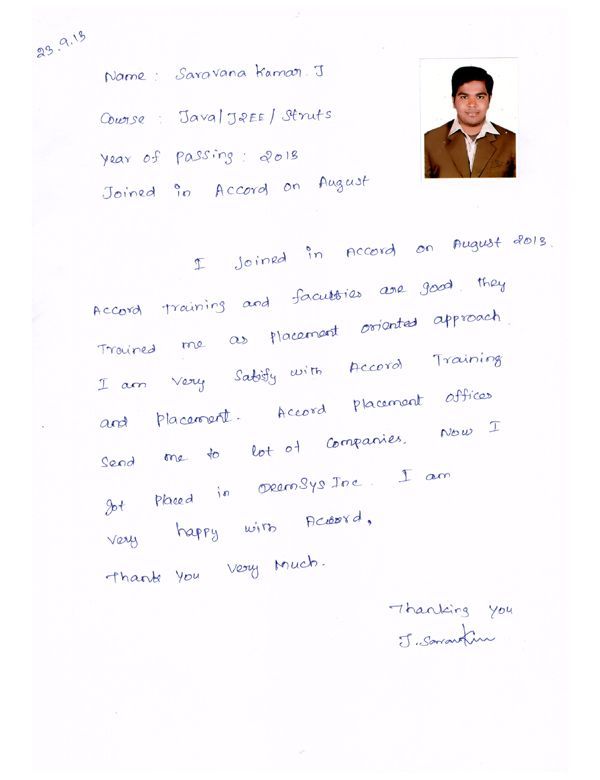 23.9.13
Name : Saravana Kumar. J
Course : Java/J2EE/Struts
Year of Passing : 2013
Joined in Accord on August
I joined in Accord on August 2013.
Accord training and faculties are good. they
Trained me as Placement oriented approach
I am very Satisfy with Accord Training
and Placement. Accord Placement offices
Send me to lot of Companies. Now I
got Placed in DeemSys Inc. I am
very happy with Accord,
Thank You Very Much.
Thanking You